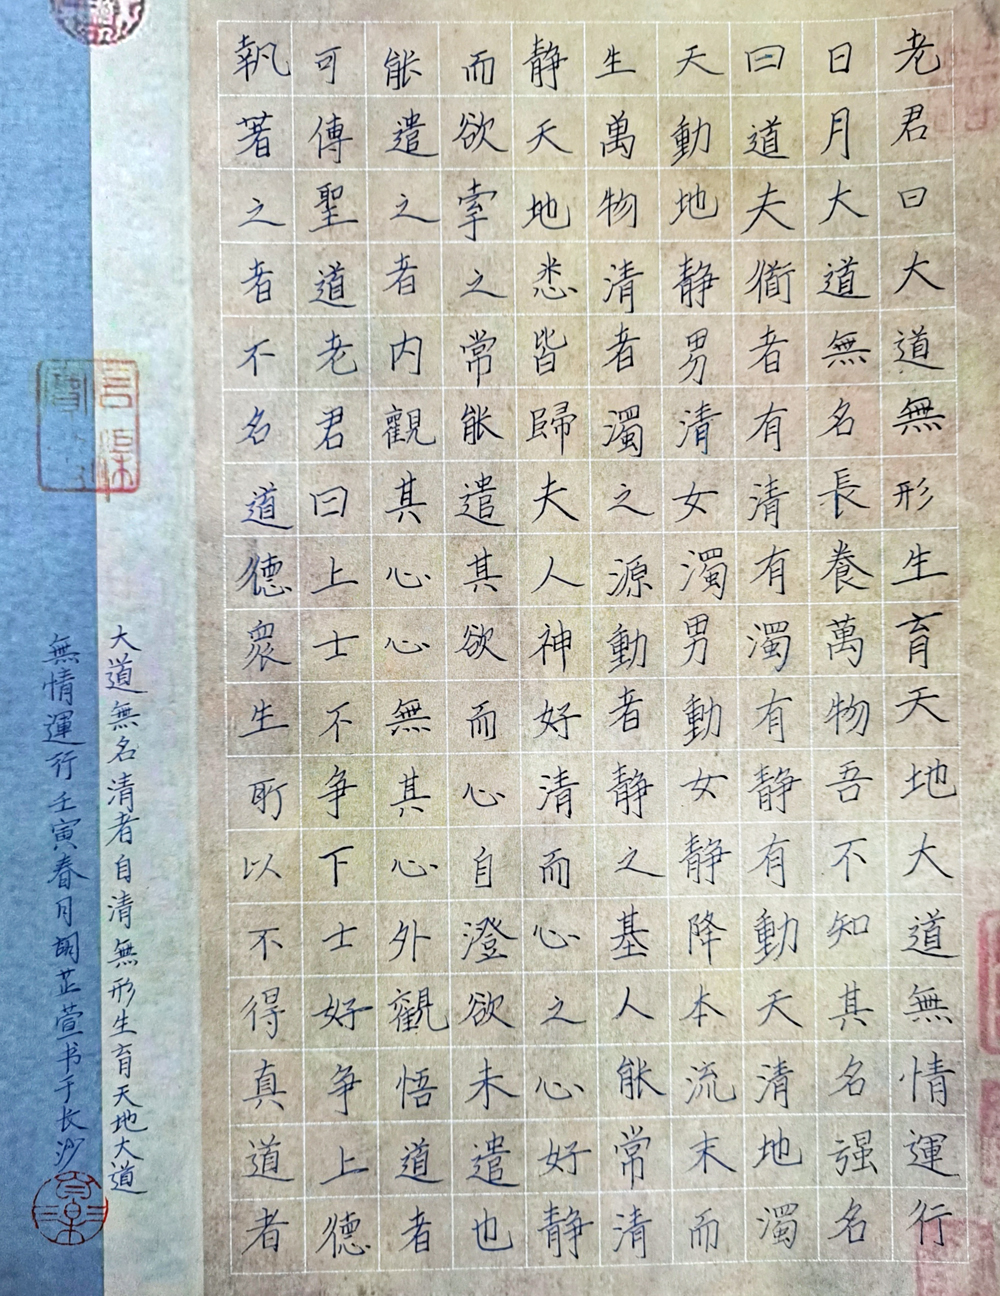 老君曰大道無形生育天地大道無情運行
日月大道無名長養萬物吾不知其名强名
曰道夫衜者有清有濁有静有動天清地濁
天動地静男清女濁男動女静降本流末而
生萬物清者濁之源動者静之基人能常清
静天地悉皆歸夫人神好清而心之心好静
而欲牽之常能遣其欲而心自澄欲未遣也
能遣之者内觀其心心無其心外觀悟道者
可傳聖道老君曰上士不争下士好争上德
執著之者不名道德衆生所以不得真道者
大道無名清者自清無形生育天地大道
無情運行壬寅春月胡芷萱书于长沙